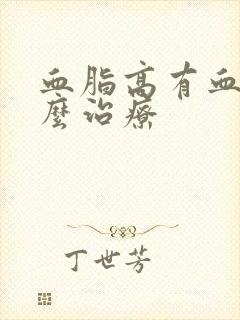 血脂高有血
麼治療
丁世芳